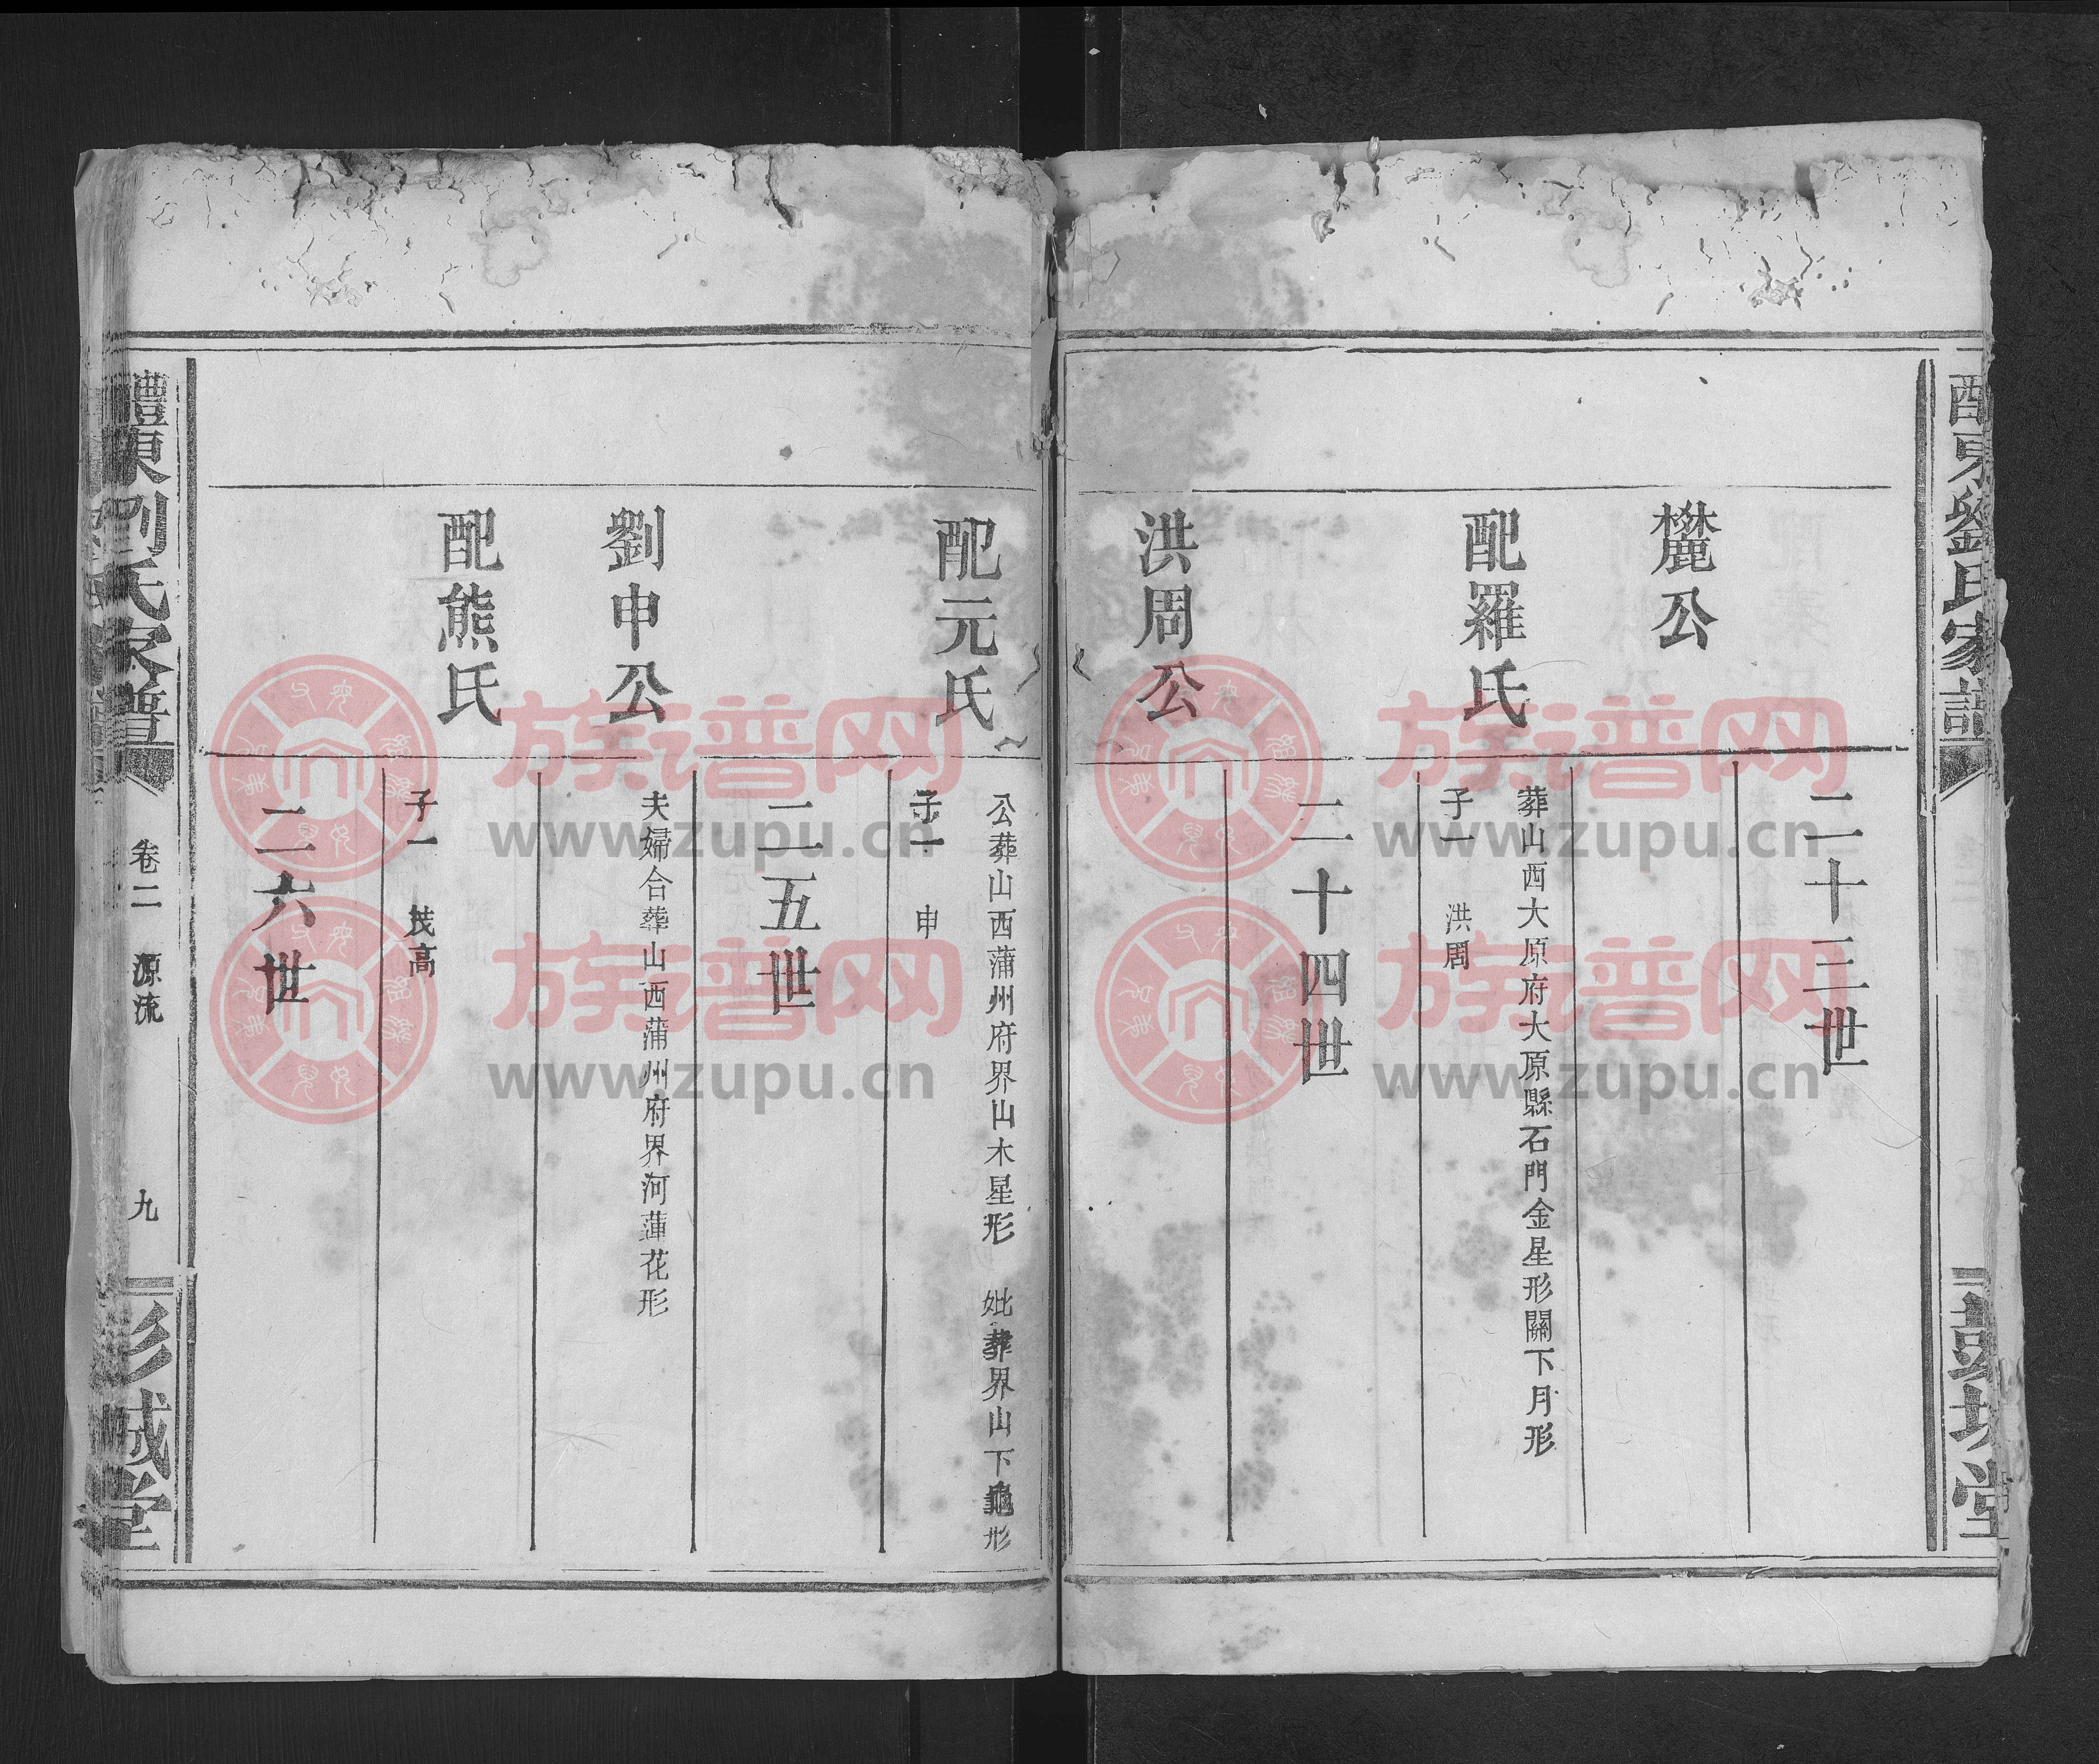 東劉氏家譜
彭城堂
二十三世
麓公
配羅氏
葬山西大原府大原縣石門金星形關下月形
子一 洪周
二十四世
洪周公
配元氏
公葬山西蒲州府界山木星形 妣葬界山下龜形
子一 申
二五世
劉申公
夫婦合葬山西蒲州府界河蓮花形
配熊氏
子一 茂高
二六世
醴東劉氏家譜
卷二 源流
九
彭城堂
族谱网
www.zupu.cn
族谱网
www.zupu.cn
族谱网
www.zupu.cn
族谱网
www.zupu.cn